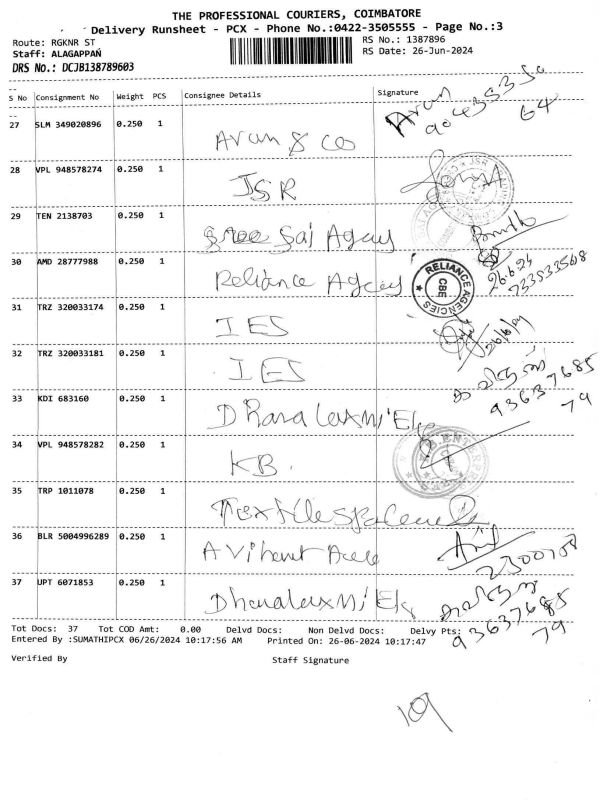 THE PROFESSIONAL COURIERS, COIMBATORE
Delivery Runsheet - PCX - Phone No.:0422-3505555 - Page No.:3
Route: RGKNR ST
RS No.: 1387896
Staff: ALAGAPPAN
RS Date: 26-Jun-2024
DRS No.: DCJB138789603
S No Consignment No Weight PCS Consignee Details Signature
27 SLM 349020896 0.250 1 Arun & Co Arun
28 VPL 948578274 0.250 1 JSR
29 TEN 2138703 0.250 1 Sree Sai Agency
30 AMD 28777988 0.250 1 Reliance Agency RELIANCE AGENCIES CBE 26.6.24
31 TRZ 320033174 0.250 1 IES 26/6/24
32 TRZ 320033181 0.250 1 IES
33 KDI 683160 0.250 1 Dhanalaxmi 93637685
79
34 VPL 948578282 0.250 1 KB.
35 TRP 1011078 0.250 1
36 BLR 5004996289 0.250 1
37 UPT 6071853 0.250 1 Dhanalaxmi 93637685
79
Tot Docs: 37 Tot COD Amt: 0.00 Delvd Docs: Non Delvd Docs: Delvy Pts:
Entered By :SUMATHIPCX 06/26/2024 10:17:56 AM Printed On: 26-06-2024 10:17:47
Verified By Staff Signature